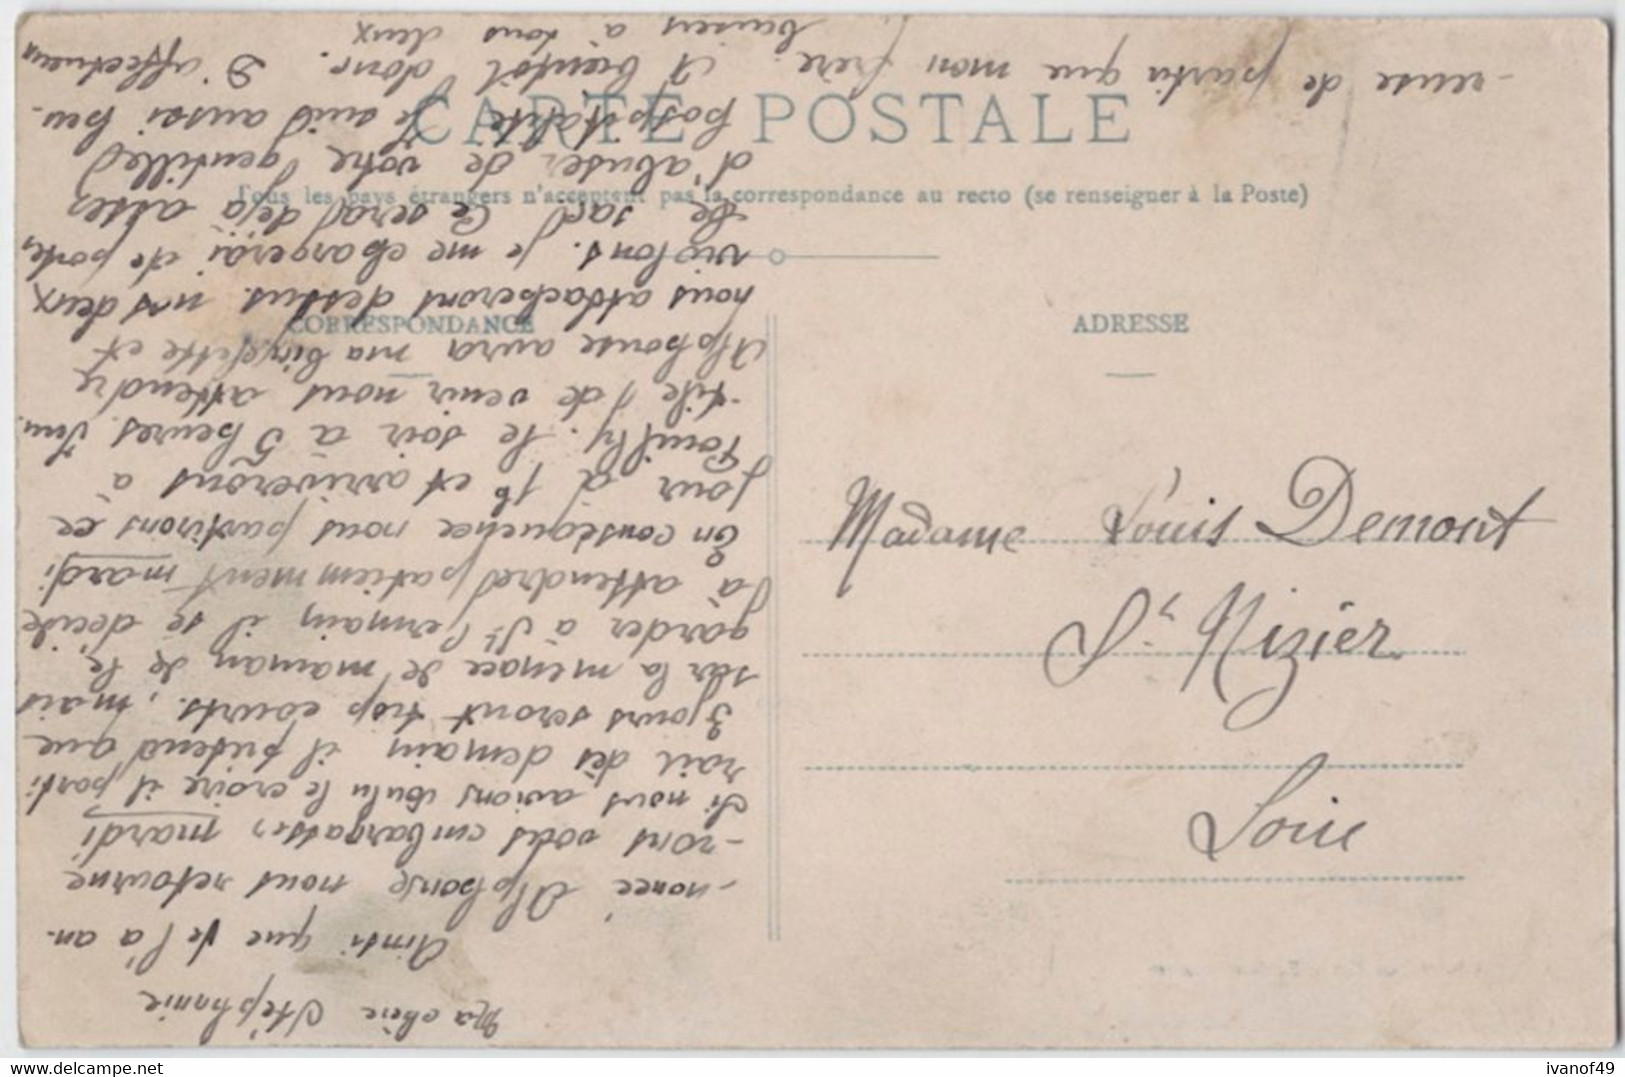 CARTE POSTALE
Tous les pays étrangers n'acceptent pas la correspondance au recto (se renseigner à la Poste)
CORRESPONDANCE
ADRESSE
Madame Louis Demont
St Nizier
Loire
Ma chère Stéphanie
Ainsi que te l'a an-
-noncé Alphonse nous retourne
-rons vous embarrasser, mardi
Si nous avions voulu le croire il parti
rait dès demain il prétend que
3 jours seront trop courts, mais
sur la menace de maman de le
garder à St Germain, il se décide
à attendre patiemment mardi
En conséquence nous partirons ce
jour à 1h et arriverons à
Pouilly. le soir à 5 heures. Inu-
-tile de venir nous attendre
Alphonse aura ma bicyclette et
nous attacherons dessus nos deux
violons. je me chargerai de porter
le sac. Ce sera déjà assez
d'abuser de votre gentille
hospitalité. Je suis aussi heu-
-reuse de partir que mon frère. A bientôt donc. D'affectueux
baisers à tous deux
ivanof49